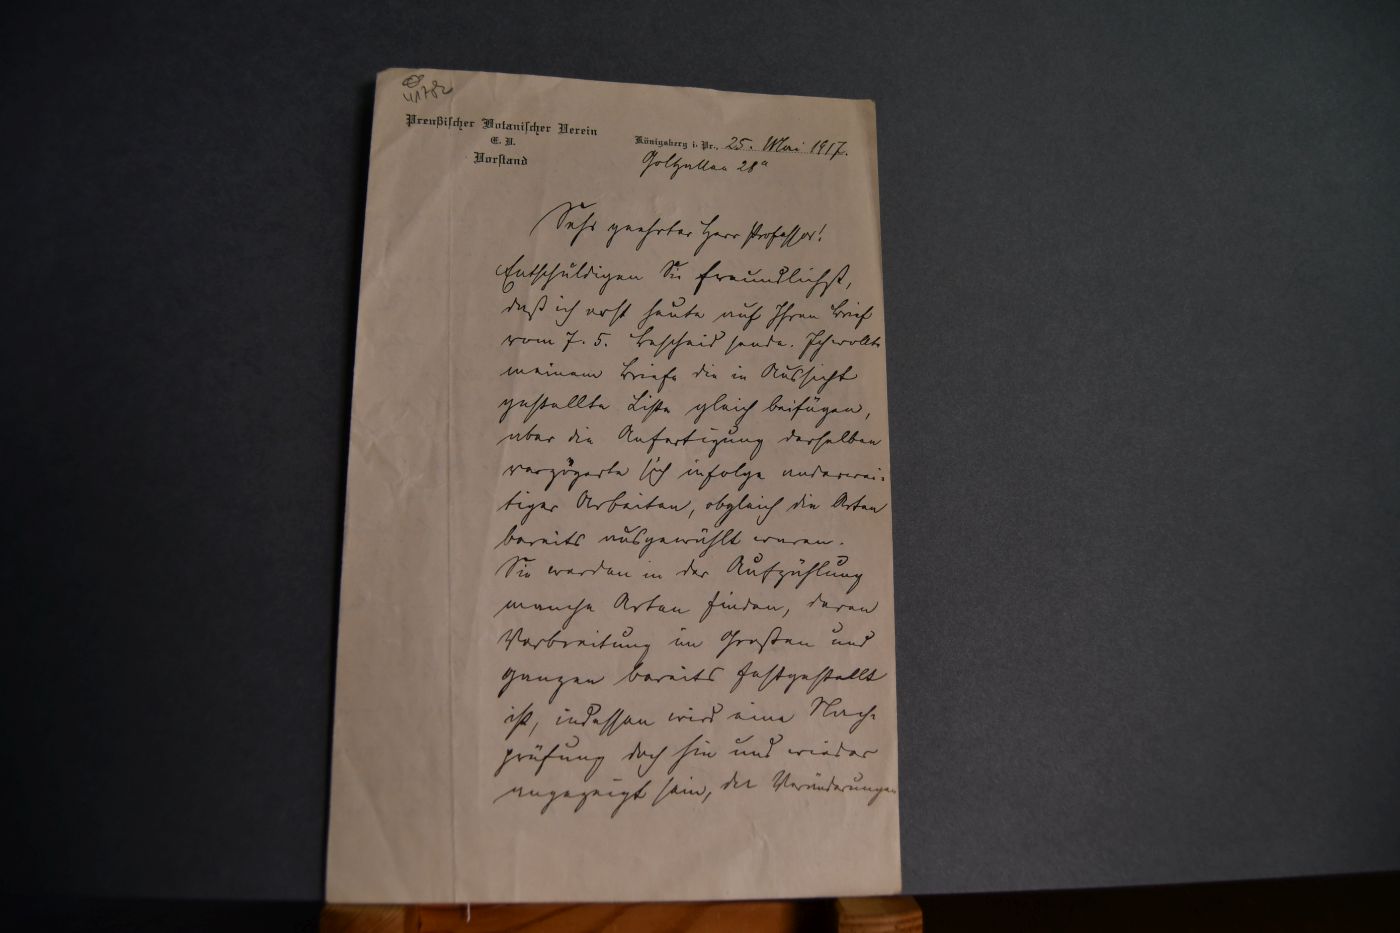 11782
Preußischer Botanischer Verein
E. V.
Vorstand
Königsberg i. Pr., 25. Mai 1917.
Goltzallee 28a
Sehr geehrter Herr Professor!
Entschuldigen Sie freundlichst,
daß ich erst heute auf Ihren Brief
vom 7. 5. Bescheid sende. Ich wollte
meinem Briefe die in Aussicht
gestellte Liste gleich beifügen,
aber die Anfertigung derselben
verzögerte sich infolge anderwei-
tiger Arbeiten, obgleich die Arten
bereits ausgewählt waren.
Sie werden in der Aufzählung
manche Arten finden, deren
Verbreitung im Großen und
ganzen bereits festgestellt
ist, indessen wird eine Nach-
prüfung doch hin und wieder
angezeigt sein, da Veränderungen